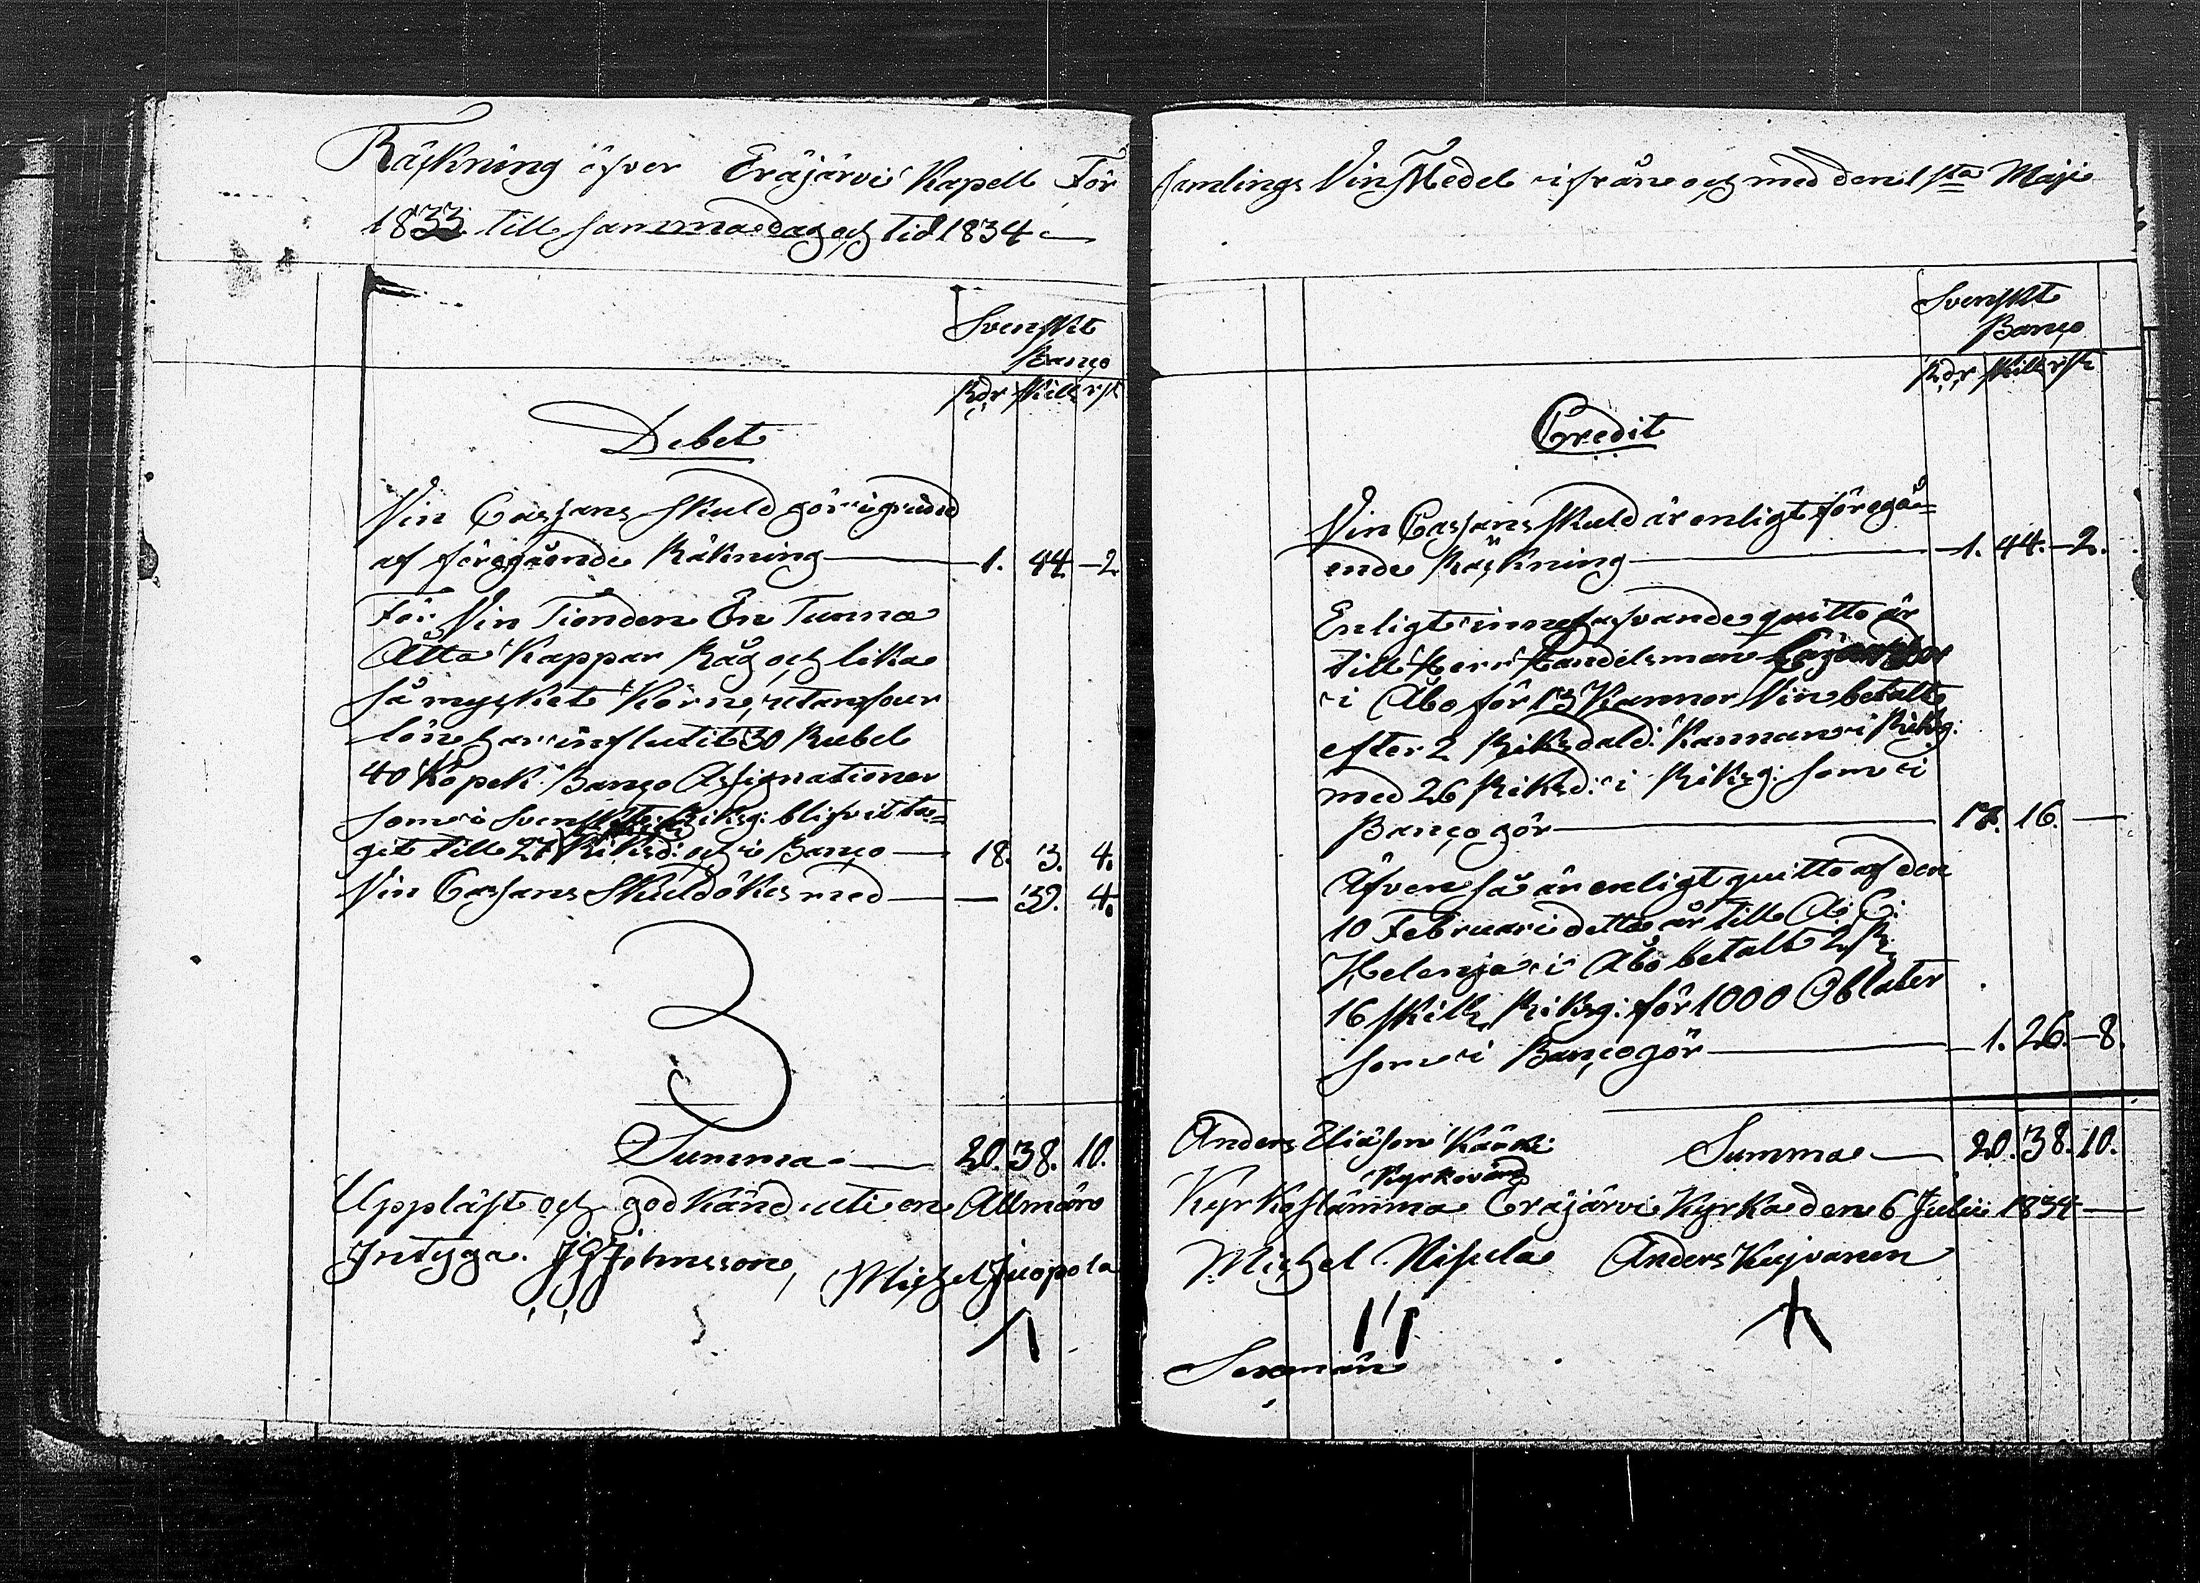 Räkning öfver Eräjärvi Kapell För
samlings Vin Medel ifrån och med den 1sta Maji
1833 till samma dag och tid 1834
Svenskt
Banco
Rdr Skill rst
Debet
Vin Cassans Skuld gör i grund
af föregående Räkning 1. 44. 2.
För Vin Tionden En Tunna
Åtta Kappar Råg och lika
så mycket Korn, utan
lön har influtit 30 Rubel
40 Kopek. Banco Assignationer
som i Svenskt Riksg: blifvit ta=
git till 27 Riksd: och i Banco 18. 3. 4.
Vin Cassans Skuld ökes med — 39. 4.
Summa 20. 38. 10.
Uppläst och godkänd uti en Allmän
Intyga. JGJohnsson, Michel Juopola
Svenskt
Banco
Rdr Skill rst
Credit
Vin Cassans Skuld är enligt föregå=
ende Räkning 1. 44. 2.
Enligt innehafvande quitto är
till Herr Handelsman
i Åbo för 13 Kannor Vin betalt
efter 2 Riksdald: Kannan i Riksg:
med 26 Riksd: i Riksg: som i
Banco gör 17. 16. —
Äfven så är enligt quitto af den
10 Februari detta år till A: C:
Helenja i Åbo betalt 2 R:
16 Skill Riksg: för 1000 Oblater
som i Banco gör 1. 26. 8.
Anders Eliäson Kärki Summa 20. 38. 10.
Kyrkovärd
Kyrkostämma Eräjärvi Kyrka den 6 Julii 1834
Michel Nisula Anders Kujvanen
Sexmän